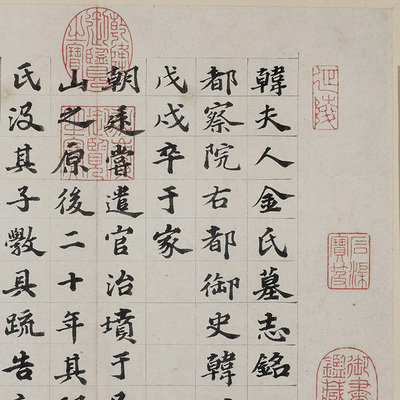 石渠寶笈
韓夫人金氏墓志銘
都察院右都御史韓
戊戌卒于家
朝廷嘗遣官治墳于
山之原後二十年其
氏没其子斆具疏告